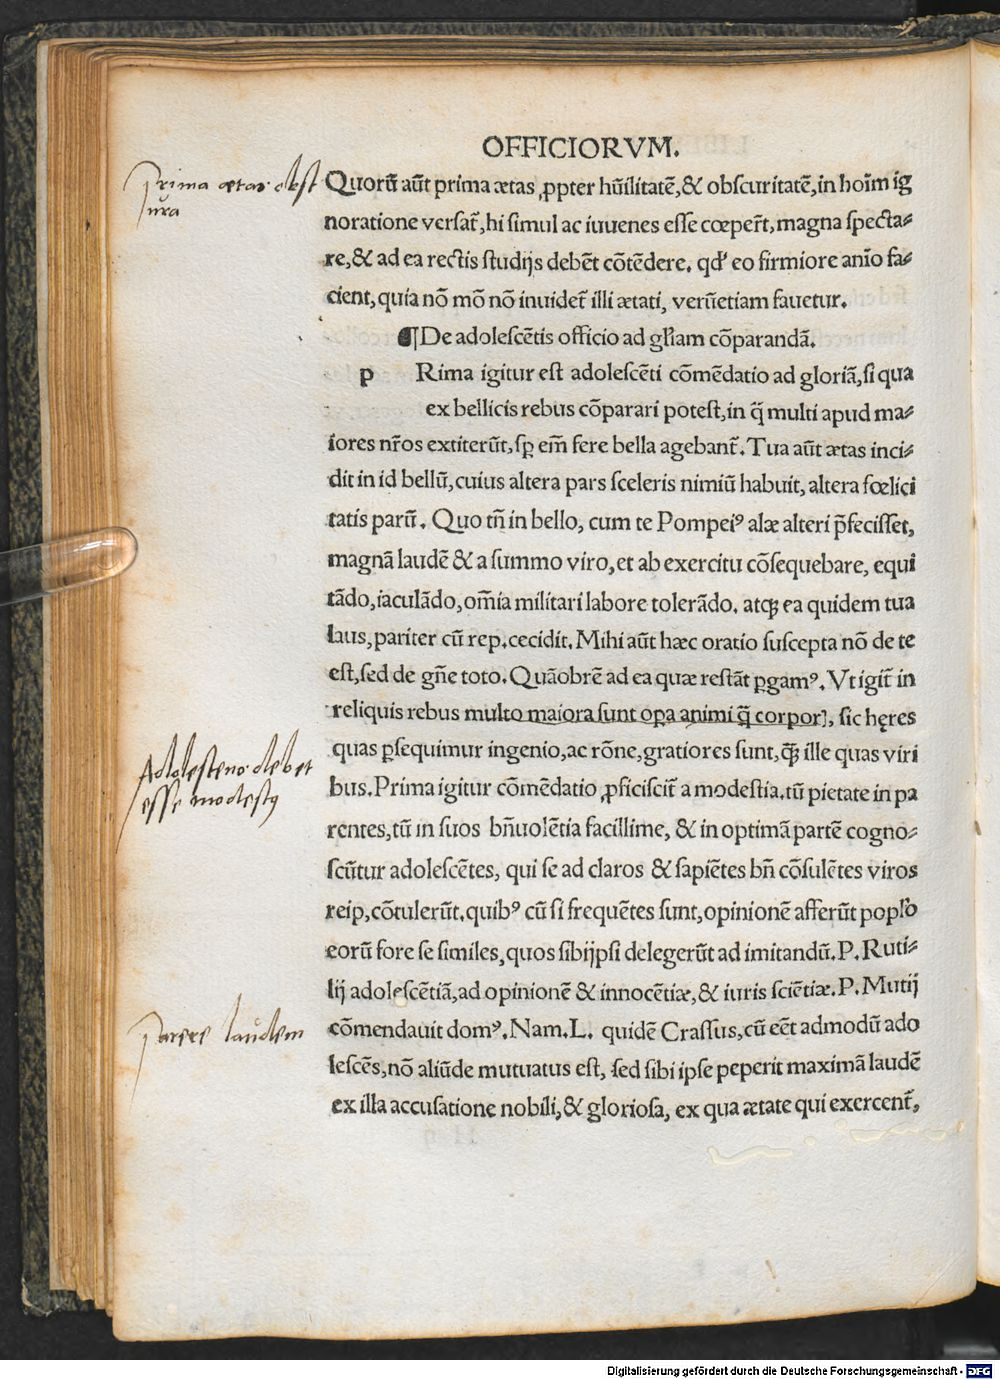 OFFICIORVM.
Prima ætas est
Quorū aūt prima ætas ꝓpter hūilitatē,& obscuritatē,in hoīm ig
noratione versat̄,hi simul ac iuuenes esse cœper̄t,magna specta⸗
re,& ad ea rectis studijs debēt cōtēdere. qd' eo firmiore anīo fa⸗
cient,quia nō mō nō inuidet̄ illi ætati, verūetiam fauetur.
¶De adolescētis officio ad gľiam cōparandā.
p Rima igitur est adolescēti cōmēdatio ad gloriā,si qua
ex bellicis rebus cōparari potest,in q̄ multi apud ma⸗
iores nr̄os extiterūt,sꝑ em̄ fere bella agebant̄. Tua aūt ætas inci⸗
dit in id bellū,cuius altera pars sceleris nimiū habuit, altera fœlici
tatis parū. Quo tn̄ in bello, cum te Pompeiꝰ alæ alteri p̄fecisset,
magnā laudē & a summo viro,et ab exercitu cōsequebare, equi
tādo,iaculādo,om̄ia militari labore tolerādo. atqꝫ ea quidem tua
laus,pariter cū rep.cecidit. Mihi aūt hæc oratio suscepta nō de te
est,sed de gn̄e toto. Quāobrē ad ea quæ restāt ꝑgamꝰ. Vt igit̄ in
reliquis rebus multo maiora sunt opa animi q̄ corporꝝ, sic hęres
quas ꝑsequimur ingenio,ac rōne,gratiores sunt,q̄ꝫ ille quas viri
Adolescens debet
esse modestꝰ
bus.Prima igitur cōmēdatio ꝓficiscit̄ a modestia.tū pietate in pa
rentes,tū in suos bn̄uolētia facillime, & in optimā partē cogno⸗
scūtur adolescētes, qui se ad claros & sapiētes bn̄ cōsulētes viros
reip,cōtulerūt.quibꝰ cū si frequētes sunt,opinionē afferūt popľo
eorū fore se similes,quos sibijpsi delegerūt ad imitandū.P. Ruti⸗
lij adolescētiā,ad opinionē & innocētiæ,& iuris sciētiæ.P. Mutij
parere laudem
cōmendauit domꝰ. Nam.L. quidē Crassus,cū eēt admodū ado
lescēs,nō aliūde mutuatus est, sed sibi ipse peperit maximā laudē
ex illa accusatione nobili,& gloriosa, ex qua ætate qui exercent̄,
Digitalisierung gefördert durch die Deutsche Forschungsgemeinschaft - DFG